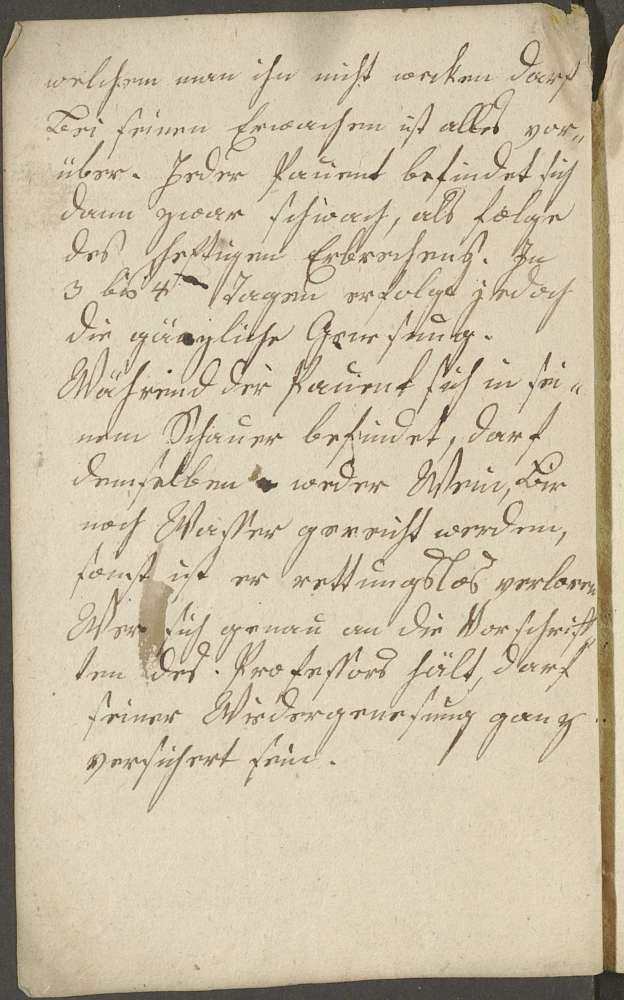 welchem man ihn nicht wecken darf
Bei seinen Erwachen ist alles vor„
über. Jeder Pacient befindet sich
dann zwar schwach, als folge
des heftigen Erbrechens. In
3 bis 4 Tagen erfolgt jedoch
die gänzliche Genesung.
Während der Pacient sich in sei„
nem Schauer befindet, darf
demselben weder Wein, Bir
noch Wasser gereicht werden,
sonst ist er rettungslos verloren
Wer sich genau an die Vorschrif„
ten des Professors hält, darf
seiner Wiedergenesung ganz
versichert sein.